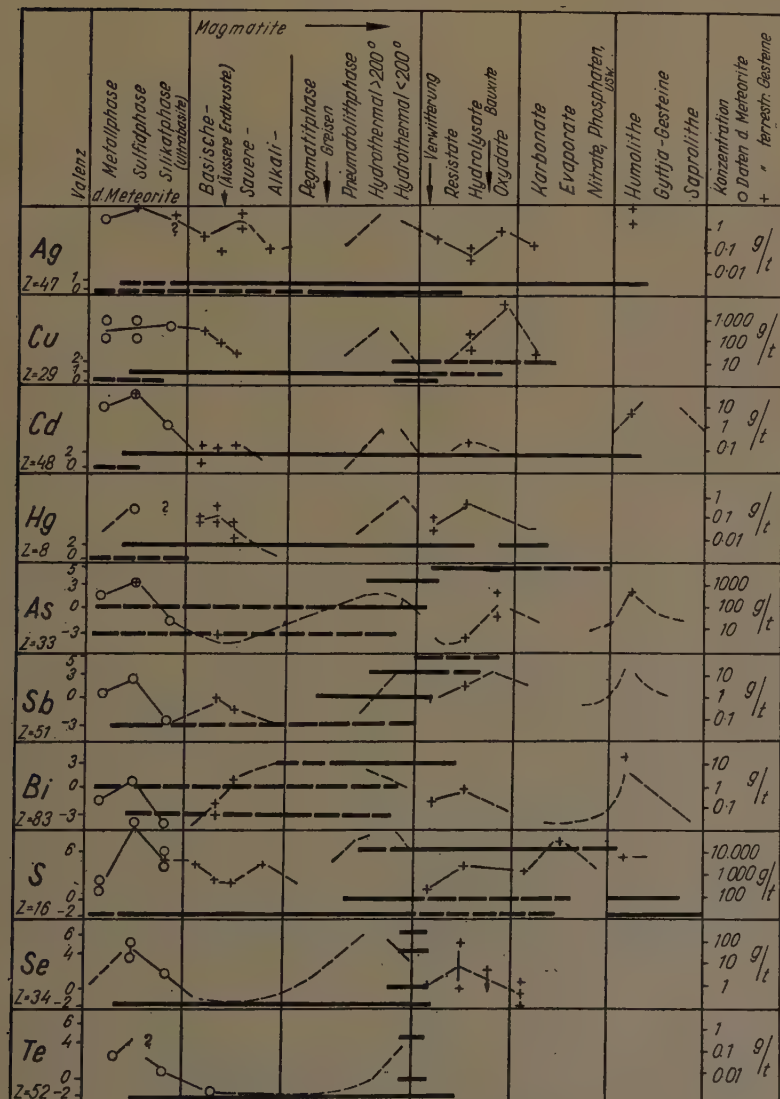 Magmatite
Valenz
Metallphase
Sulfidphase
Silikatphase
(Ultrabasite)
d. Meteorite
Basische-
(Äussere Erdkruste)
Sauere-
Alkali-
Pegmatitphase
Greisen
Pneumatolithphase
Hydrothermal >200°
Hydrothermal <200°
Verwitterung
Resistate
Hydrolysate
Bauxite
Oxydate
Karbonate
Evaporate
Nitrate, Phosphaten,
usw.
Humolithe
Gyttja-Gesteine
Saprolithe
Konzentration
o Daten d. Meteorite
+ " terrestr. Gesteine
Ag
Z=47
1
0
?
1
0·1
0·01
g/t
Cu
Z=29
2
1
0
1·000
100
10
g/t
Cd
Z=48
2
0
10
1
0·1
g/t
Hg
Z=8
2
0
?
1
0·1
0·01
g/t
As
Z=33
5
3
0
-3
1000
100
10
g/t
Sb
Z=51
5
3
0
-3
10
1
0·1
g/t
Bi
Z=83
3
0
-3
10
1
0·1
g/t
S
Z=16
6
0
-2
10.000
1000
100
g/t
Se
Z=34
6
4
0
-2
100
10
1
g/t
Te
Z=52
6
4
0
-2
?
1
0.1
0.01
g/t